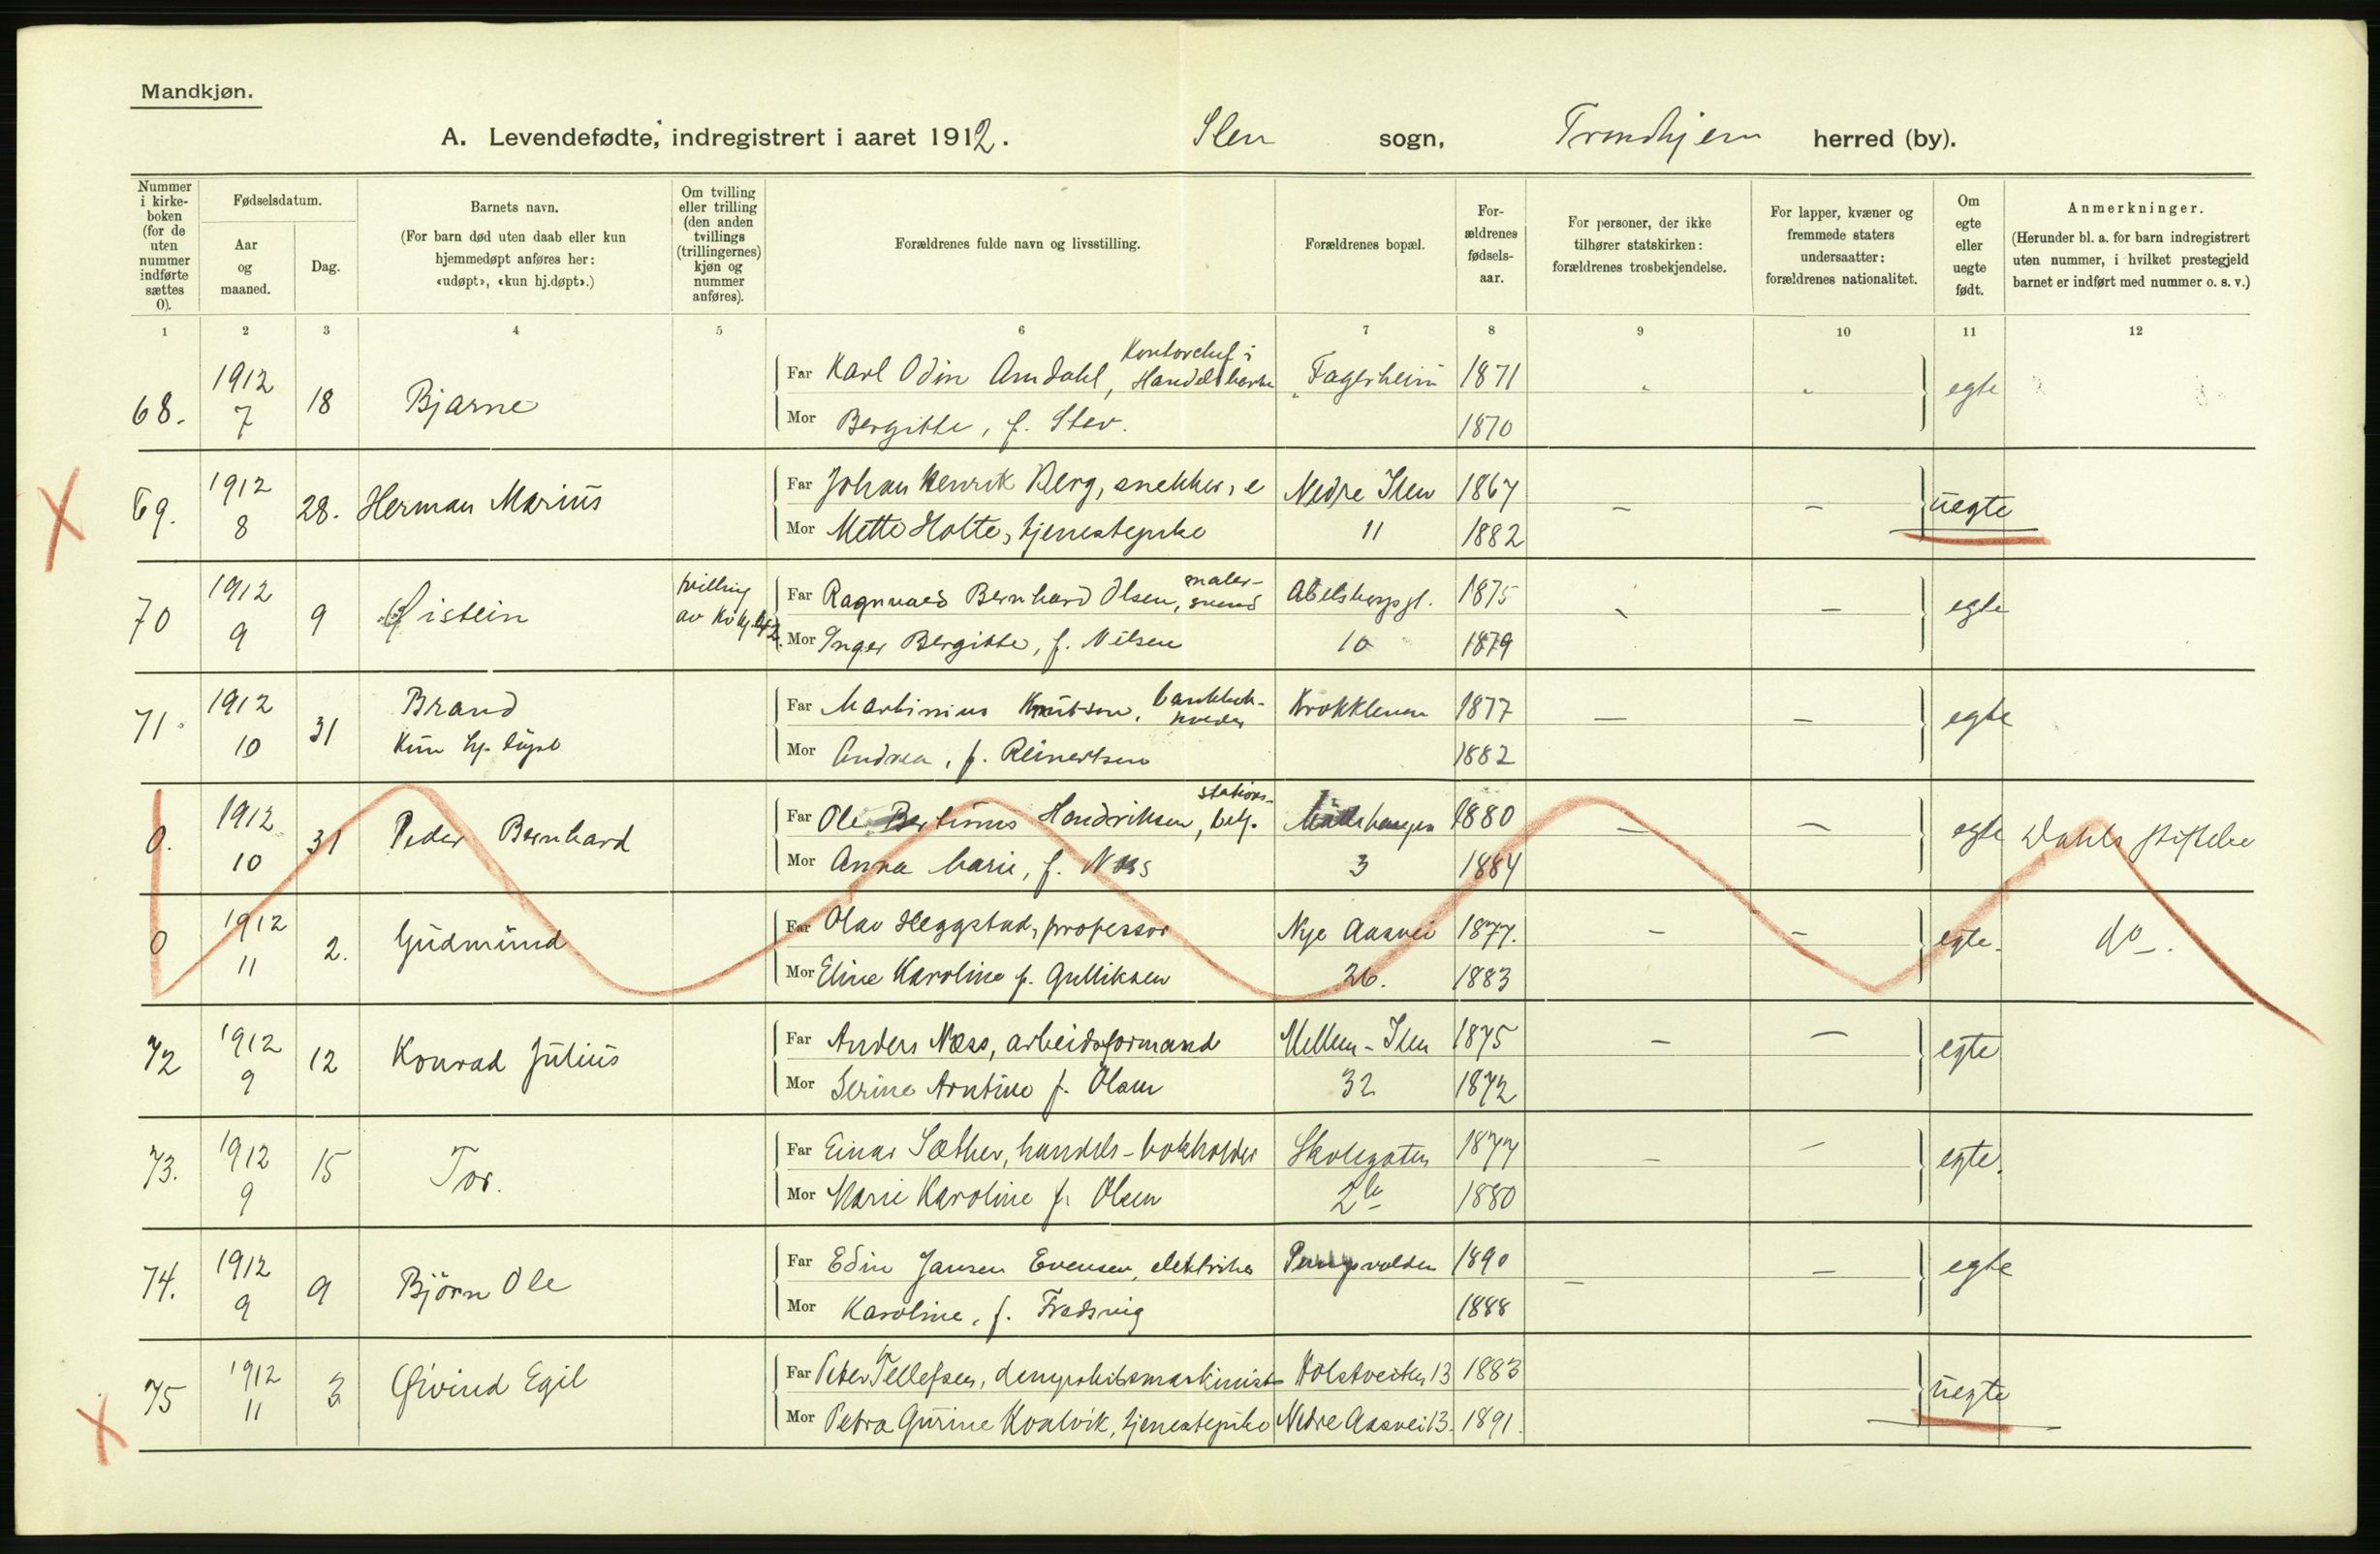 Mandkjøn.
A. Levendefødte, indregistrert i aaret 1912. Ilen sogn, Trondhjem herred (by).
Nummer i kirke-boken (for de uten nummer indførte sættes 0).
Fødselsdatum.
Aar og maaned.
Dag.
Barnets navn.
(For barn død uten daab eller kun hjemmedøpt anføres her: «udøpt», «kun hj.døpt».)
Om tvilling eller trilling (den anden tvillings (trillingernes) kjøn og nummer anføres).
Forældrenes fulde navn og livsstilling.
Forældrenes bopæl.
For-ældrenes fødsels-aar.
For personer, der ikke tilhører statskirken: forældrenes trosbekjendelse.
For lapper, kvæner og fremmede staters undersaatter: forældrenes nationalitet.
Om egte eller uegte født.
Anmerkninger.
(Herunder bl. a. for barn indregistrert uten nummer, i hvilket prestegjeld barnet er indført med nummer o. s. v.)
1 2 3 4 5 6 7 8 9 10 11 12
68. 1912 7 18 Bjarne
Far Karl Odin Amdahl, Kontorchef i Handelsbanken Fagerheim 1871 egte
Mor Bergitte, f. Sten. 1870
69. 1912 8 28. Herman Marius
Far Johan Henrik Berg, snekker, e Nedre Ilen 1867 — — uegte
Mor Mette Holte, tjenestepike 11 1882
70 1912 9 9 Øistein tvilling av Kvkj. 42.
Far Ragnvald Bernhard Olsen, maler-svend Abelsborggt. 1875 — egte
Mor Inger Bergitte, f. Nilsen 10 1879
71. 1912 10 31 Brand
Kun hj. døpt
Far Martinius Knutsen, bankbok-holder Krokkleven 1877 — — egte
Mor Andrea, f. Reinertsen 1882
0. 1912 10 31 Peder Bernhard
Far Ole Bertinius Hendriksen, stations-betj. 1880 — — egte Dahls stiftelse
Mor Anna Marie, f. Næss 3 1884
0 1912 11 2. Gudmund
Far Olav Heggstad, professor Nye Aasvei 1877. — — egte. do.
Mor Eline Karoline f. Gulliksen 26. 1883
72 1912 9 12 Konrad Julius
Far Anders Næss, arbeidsformand Mellem-Ilen 1875 — — egte
Mor Serine Arntine f. Olsen 32 1872
73. 1912 9 15 Tor.
Far Einar Sæther, handels-bokholder Skolegaten 1877 — — egte.
Mor Marie Karoline f. Olsen 2b 1880
74. 1912 9 9 Björn Ole
Far Edin Jansen Evensen, elektriker 1890 — — egte
Mor Karoline, f. Fradsvig 1888
75 1912 11 3 Øivind Egil
Far Peter Tellefsen, dampskibsmaskinist Holstveiten 13 1883 uegte
Mor Petra Gurine Kvalvik, tjenestepike Nedre Aasvei 13. 1891.